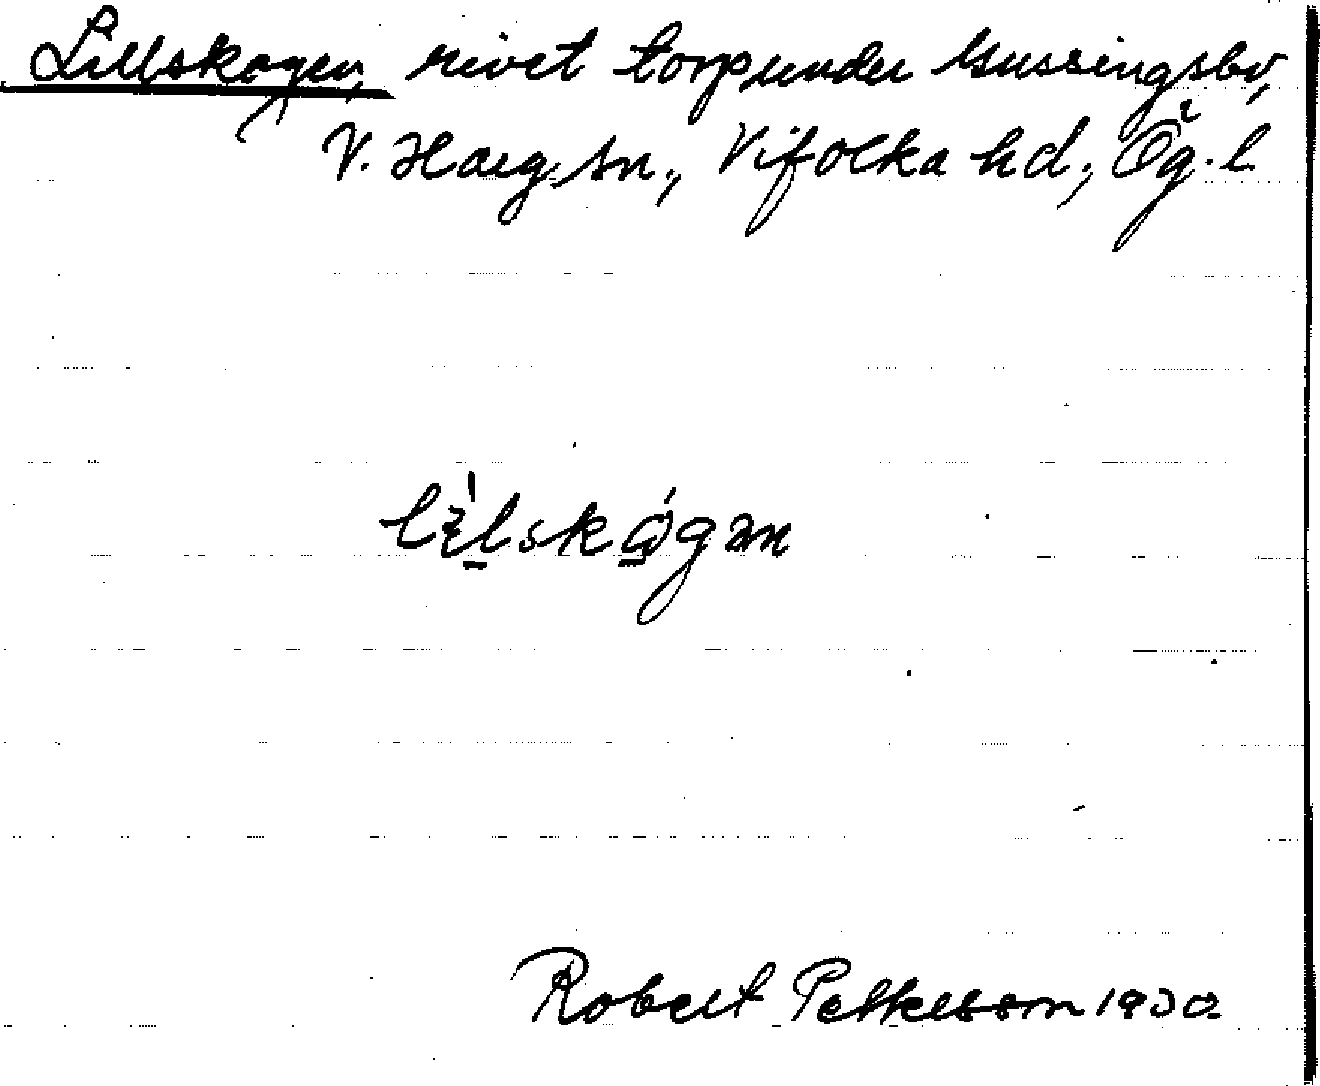 Lillskogen, rivet torp under Gussingsbo,
V. Harg sn., Vifolka hd., Ög. l
lìlskǫ́gən
Robert Pettersson 1930